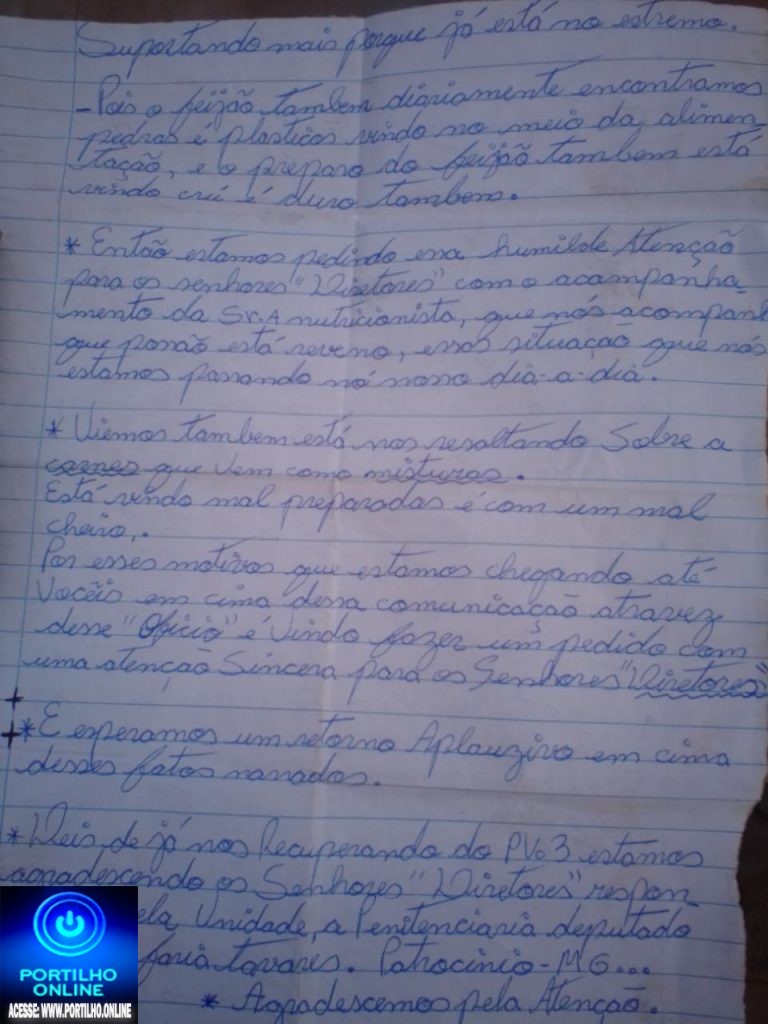 Suportando mais porque já está no estremo.
-Pois o feijão tambem diariamente encontramos
pedras é plasticos vindo no meio da alimen-
tação, e o preparo do feijão tambem está
vindo crú é duro tambem.
* Então estamos pedindo essa humilde Atenção
para os senhores "Diretores" com o acompanha-
mento da Sr.A nutricionista, que nós acompanh
que possão está reveno, essas situação que nós
estamos passando nó nosso dia-a-dia.
* Viemos tambem está nos resaltando Sobre a
carnes que vem como misturas.
Está vindo mal preparadas é com um mal
cheiro,.
Por esses motivos que estamos chegando até
Vocêis em cima dessa comunicação atravez
desse "Oficio" é Vindo fazer um pedido com
uma atenção Sincera para os Senhores "Diretores"
*E esperamos um retorno Aplauzivo em cima
desses fatos narrados.
*Deis de já nos Recuperando do PVo3 estamos
agradescendo os Senhores "Diretores" respon-
ela Unidade, a Penitenciaria deputado
faria tavares. Patrocinio-MG...
* Agradescemos pela Atenção.
PORTILHO
ONLINE
ACESSE: WWW.PORTILHO.ONLINE